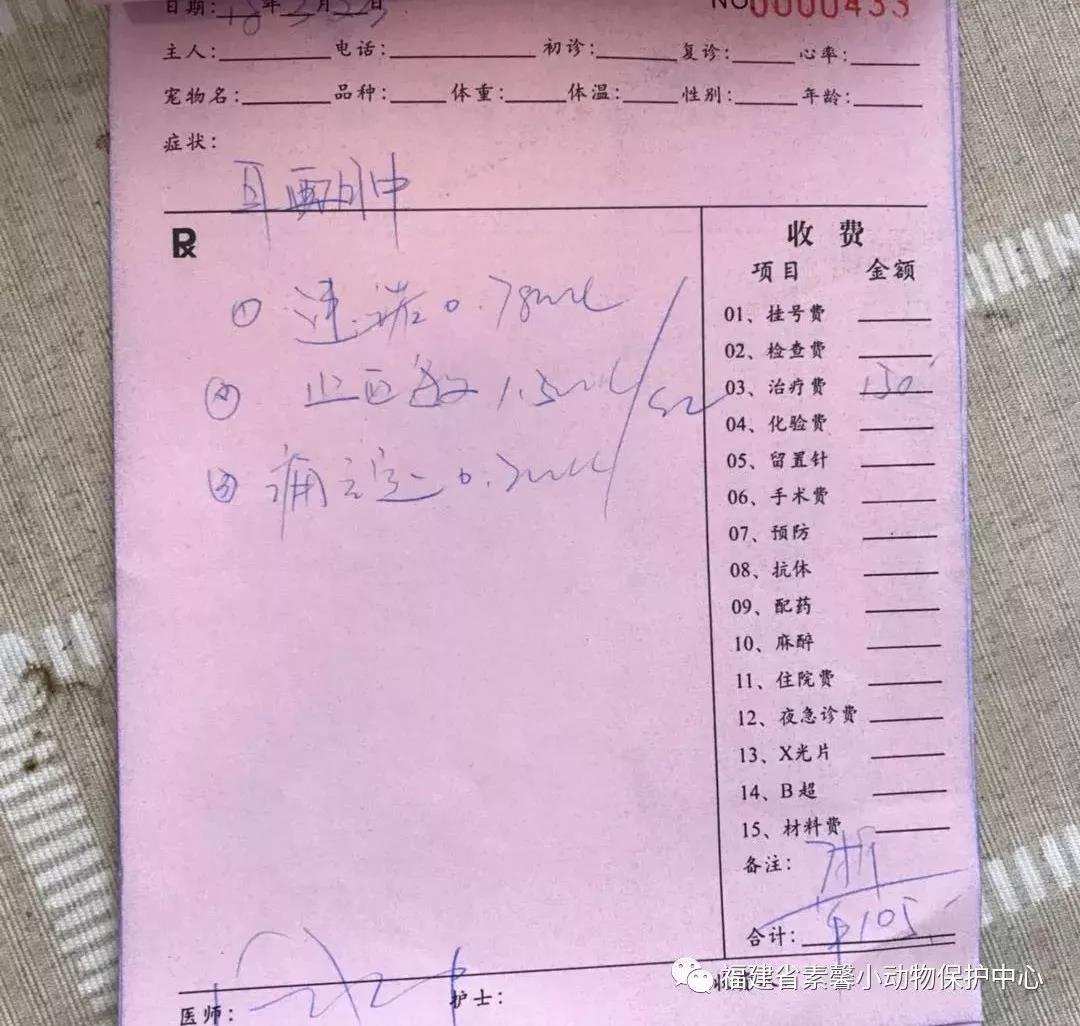 日期: 18年3月22日 NO0000433
主人: 电话: 初诊: 复诊: 心率:
宠物名: 品种: 体重: 体温: 性别: 年龄:
症状:
耳 肿
Rx 收 费
项目 金额
① 速诺 0.78ml
② 止血敏 1.5ml
③ 痛立定 0.7ml
01、挂号费
02、检查费
03、治疗费 150
04、化验费
05、留置针
06、手术费
07、预防
08、抗体
09、配药
10、麻醉
11、住院费
12、夜急诊费
13、X光片
14、B超
15、材料费
备注: 7折
合计: ¥105
医师: 护士:
福建省素馨小动物保护中心